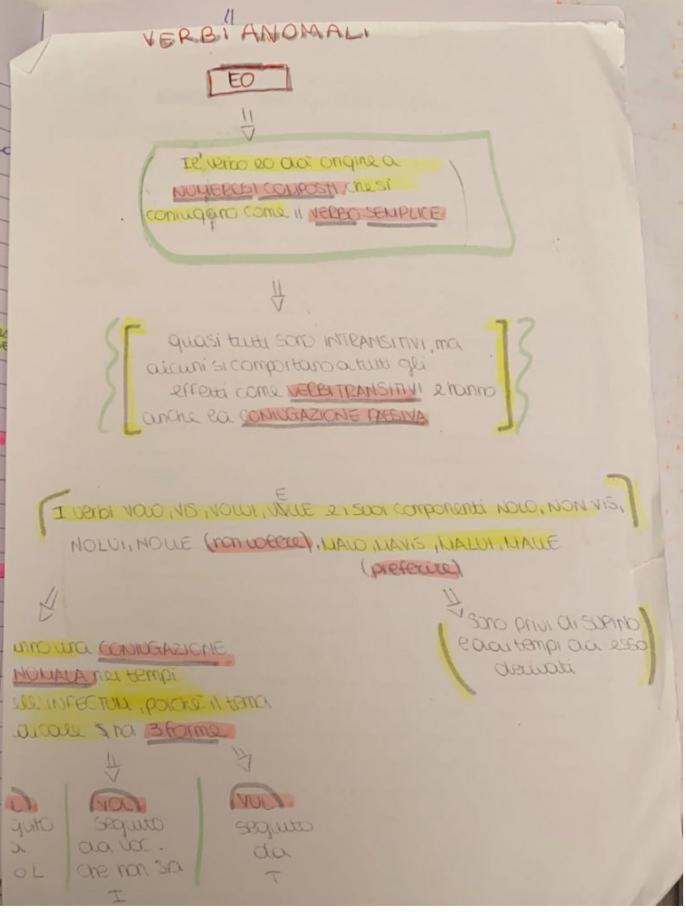 VERBI ANOMALI
EO
Il verbo eo dà origine a
NUMEROSI COMPOSTI, che si
coniugano come il VERBO SEMPLICE
quasi tutti sono INTRANSITIVI, ma
alcuni si comportano a tutti gli
effetti come VERBI TRANSITIVI e hanno
anche la CONIUGAZIONE PASSIVA
I verbi VOLO, VIS, VOLUI, VELLE e i suoi componenti NOLO, NON VIS,
NOLUI, NOLLE (non volere), MALO, MAVIS, MALUI, MALLE
(preferire)
sono privi di SUPINO
e dai tempi da esso
derivati
anno una CONIUGAZIONE
NOMALA nei tempi
ell'INFECTUM, poiché il tema
dicale ha 3 forme
VOL
seguito
da voc.
che non sia
I
VUL
seguito
da
T
guito
a
o L